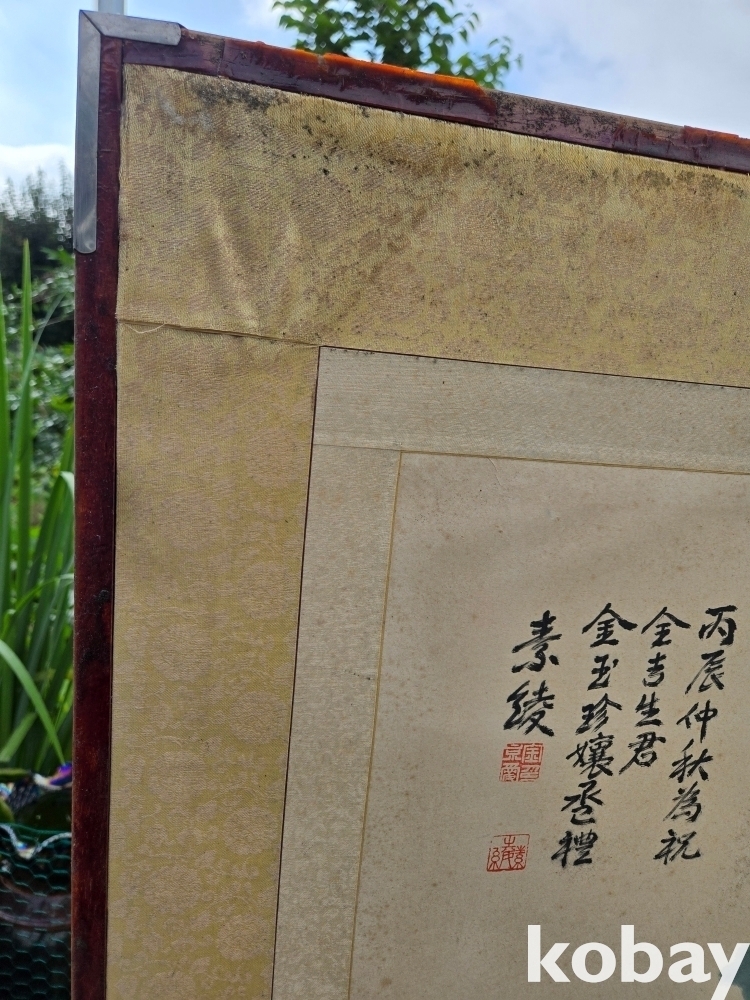 丙辰仲秋為祝
全吉生君
金玉珍孃丞禮
素綾
kobay